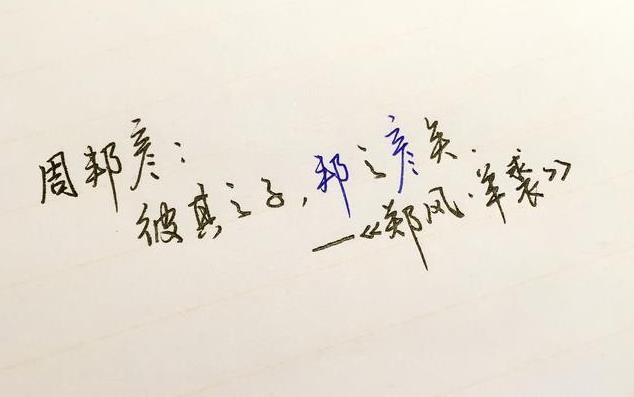 周邦彦：
彼其之子，邦之彦兮.
—《郑风·羔裘》